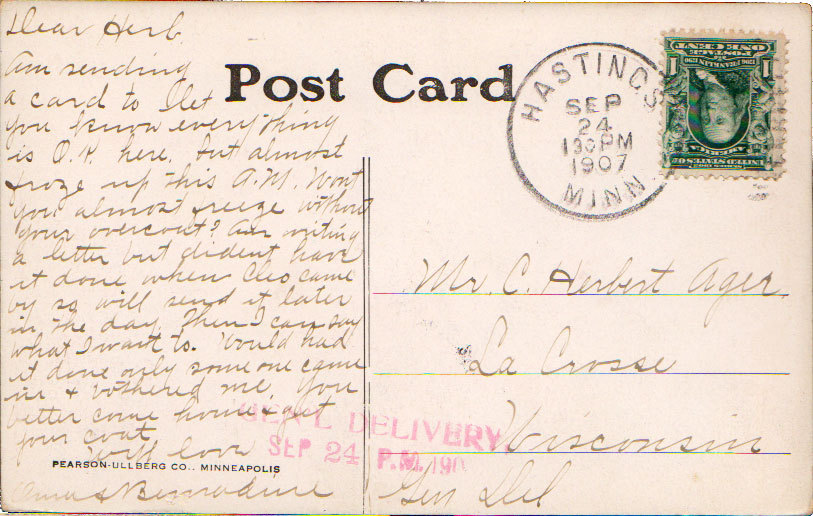 Dear Herb.
Am sending
a card to let
you know everything
is O.K. here. but almost
froze up this A.M. Wont
you almost freeze without
your overcoat? Am writing
a letter but dident have
it done when Cleo came
by so will send it later
in the day. Then I can say
what I want to. Would had
it done only some one came
in & bothered me. You
better come home & get
your coat.
With love
Bernadine
PEARSON-ULLBERG CO., MINNEAPOLIS
Post Card
HASTINGS
SEP
24
130PM
1907
MINN
ONE CENT
POSTAGE
1706 FRANKLIN 1790
1 1
SERIES 1902
UNITED STATES OF
AMERICA
Mr. C. Herbert Ager
La Crosse
Wisconsin
Gen Del
GEN'L DELIVERY
SEP 24 P.M. 190